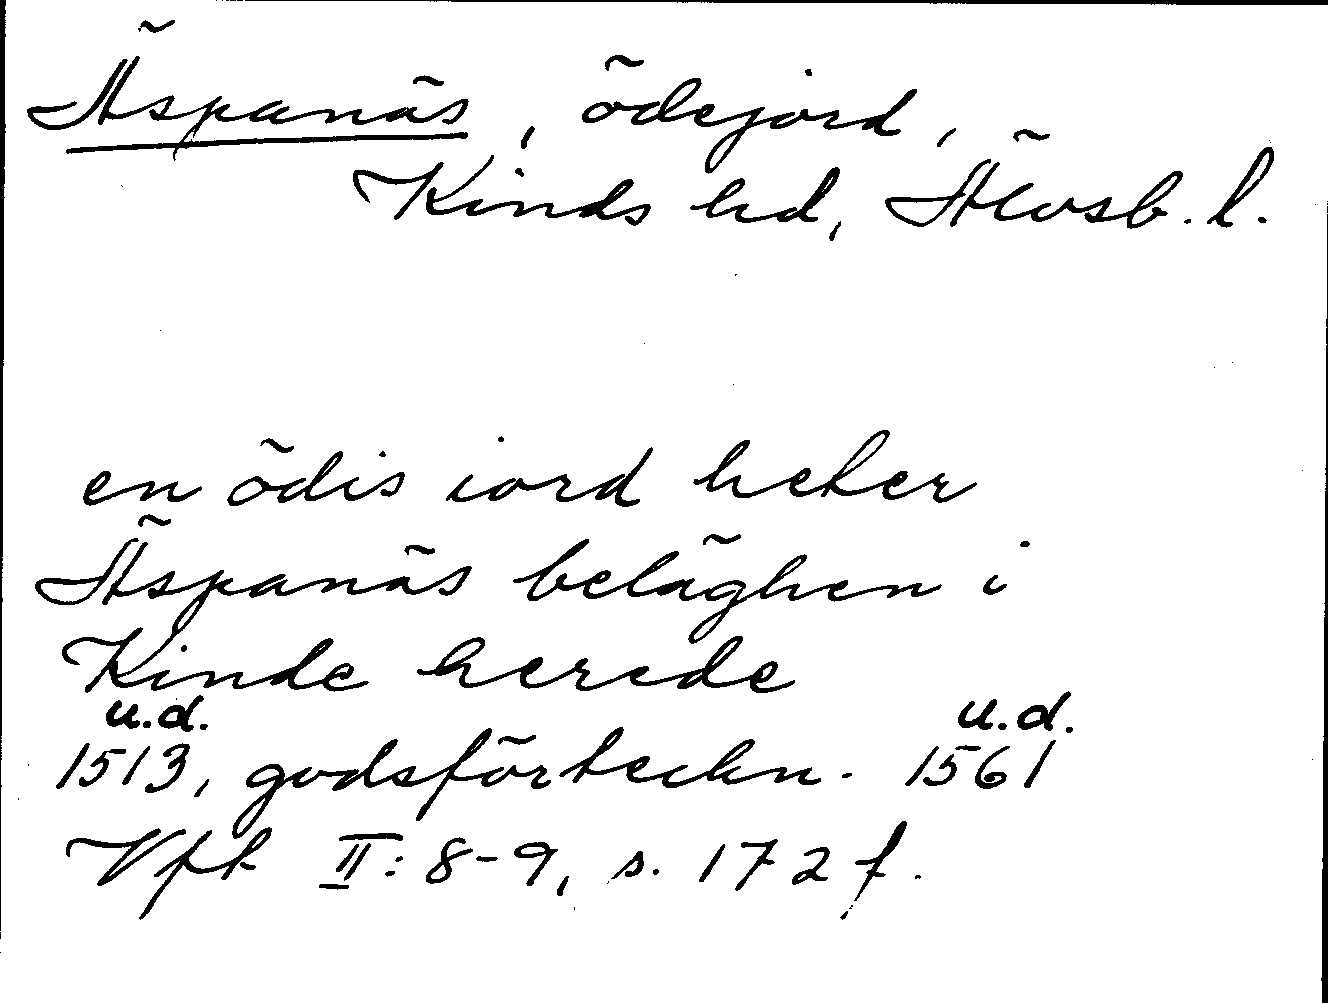 Äspanäs, ödejord,
Kinds hd, Älvsb. l.
en ödis iord heter
Äspanäs beläghen i
Kinde herede
u.d. u.d.
1513, godsförteckn. 1561
Vft II: 8-9, s. 172 f.